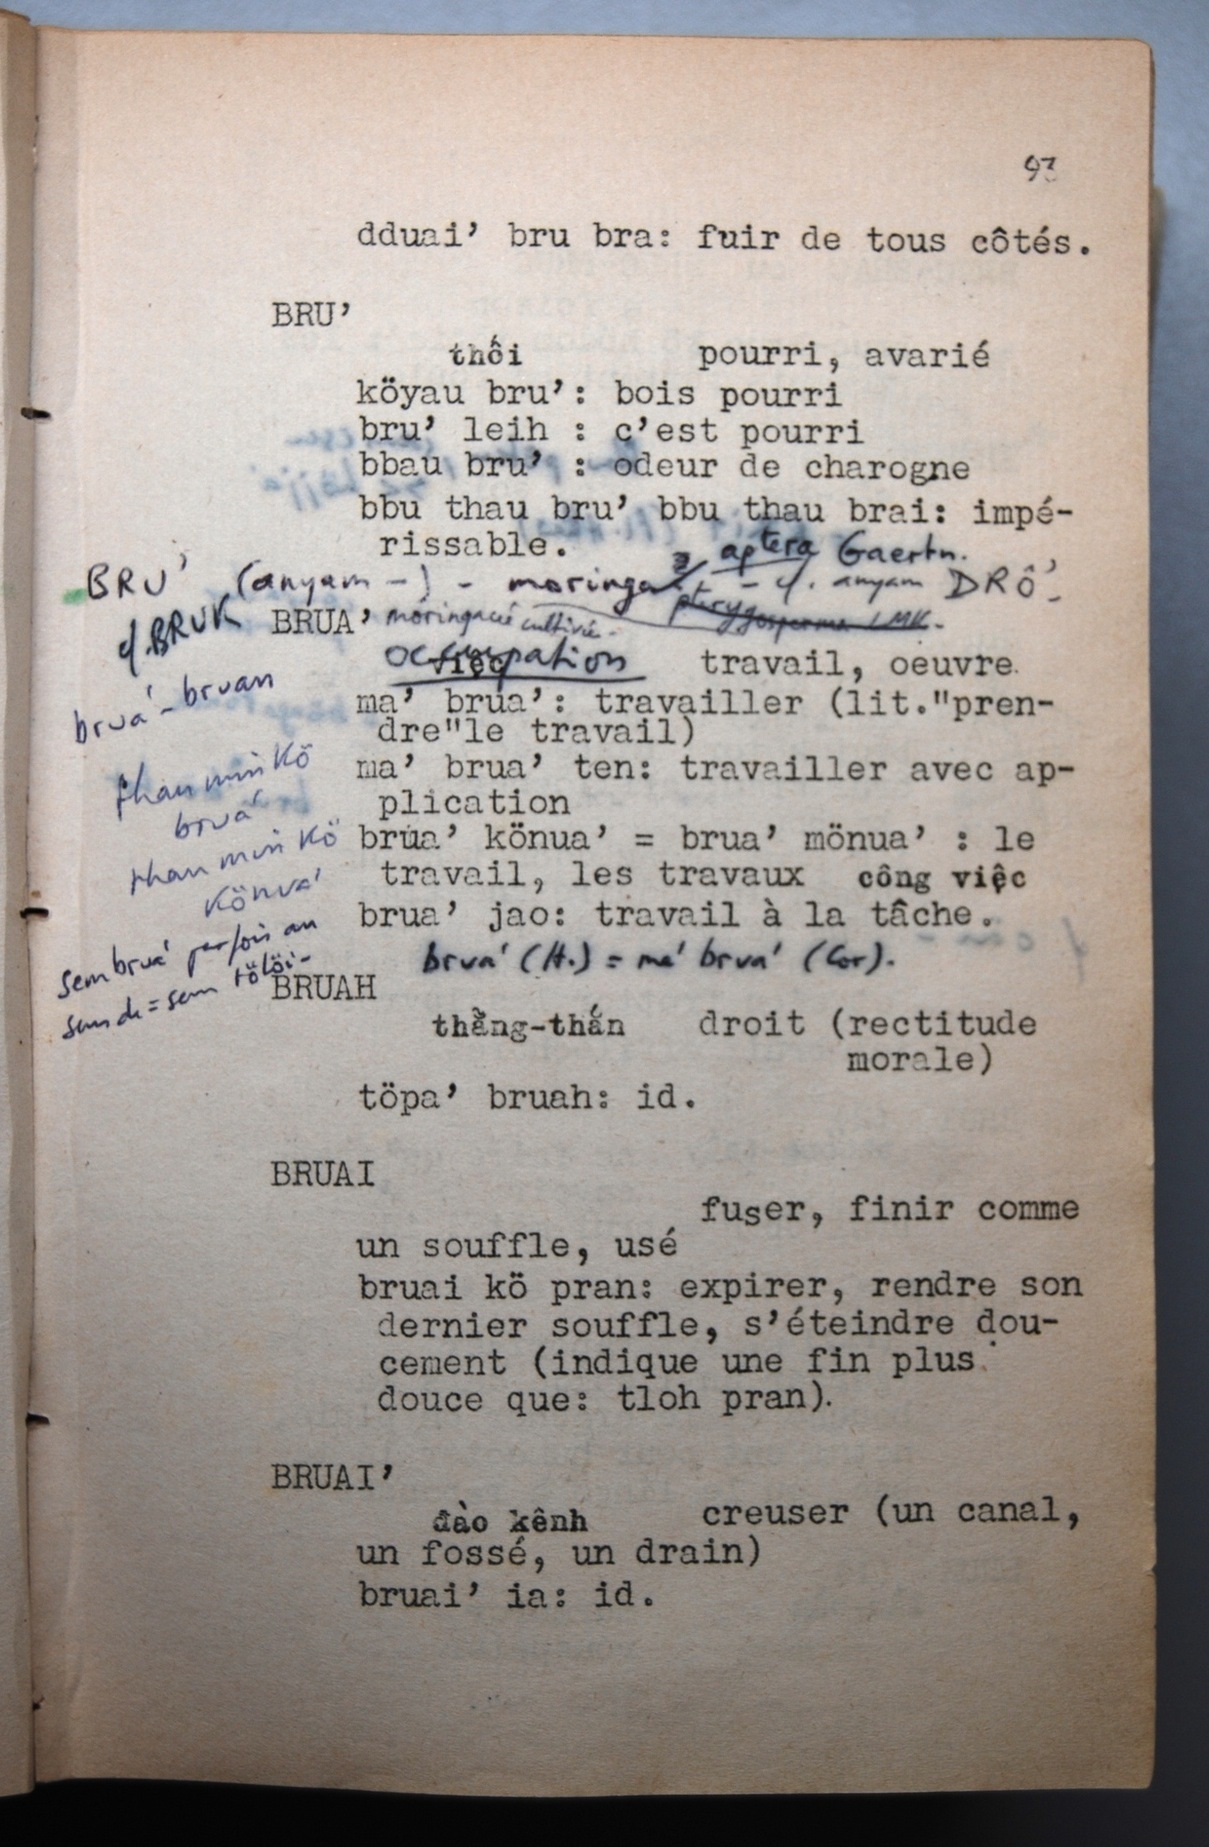 93
dduai’ bru bra: fuir de tous côtés.
BRU’
thối pourri, avarié
köyau bru’: bois pourri
bru’ leih : c’est pourri
bbau bru’ : odeur de charogne
bbu thau bru’ bbu thau brai: impé-
rissable.
aptera Gaertn.
BRU’ (anyam -) - moringa - cf. anyam DRÔ’-
pterygosperma LMK.-
cf. BRUK
BRUA’ moringacée cultivée-
việc occupation travail, oeuvre.
brua’- bruan
ma’ brua’: travailler (lit."pren-
dre"le travail)
ma’ brua’ ten: travailler avec ap-
plication
than min kö
brua’
than min kö
könua’
brua’ könua’ = brua’ mönua’ : le
travail, les travaux công việc
brua’ jao: travail à la tâche.
brua’ (H.) = ma’ brua’ (Cor).
sem brua’ parfois au
sens de = sem tölöi-
BRUAH
thẳng-thắn droit (rectitude
morale)
töpa’ bruah: id.
BRUAI
fuser, finir comme
un souffle, usé
bruai kö pran: expirer, rendre son
dernier souffle, s’éteindre dou-
cement (indique une fin plus
douce que: tloh pran).
BRUAI’
đào kênh creuser (un canal,
un fossé, un drain)
bruai’ ia: id.